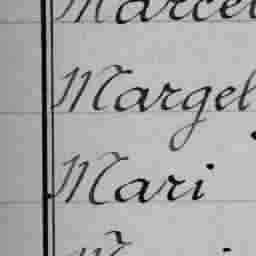 Marcel
Margel
Mari